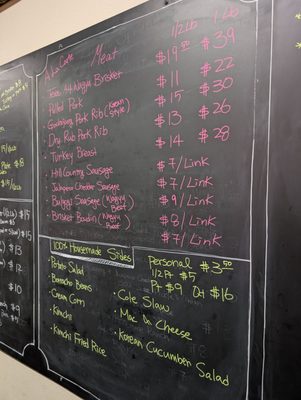 A La Carte
Meat
1/2 Lb
1 Lb
Texas A4 Wagyu Brisket
$19.50
$39
Pulled Pork
$11
$22
Gochujang Pork Rib (Korean Style)
$15
$30
Dry Rub Pork Rib
$13
$26
Turkey Breast
$14
$28
Hill Country Sausage
$7/Link
Jalapeno Cheddar Sausage
$7/Link
Bulgogi Sausage (Wagyu Beef)
$9/Link
Brisket Boudin (Wagyu Beef)
$8/Link
$7/Link
100% Housemade Sides
Personal $3.50
1/2 Pt $5
Pt $9 Qt $16
Potato Salad
Borracho Beans
Cream Corn
Kimchi
Kimchi Fried Rice
Cole Slaw
Mac n Cheese
Korean Cucumber Salad
Plate $8
$15
$13
$12
$10